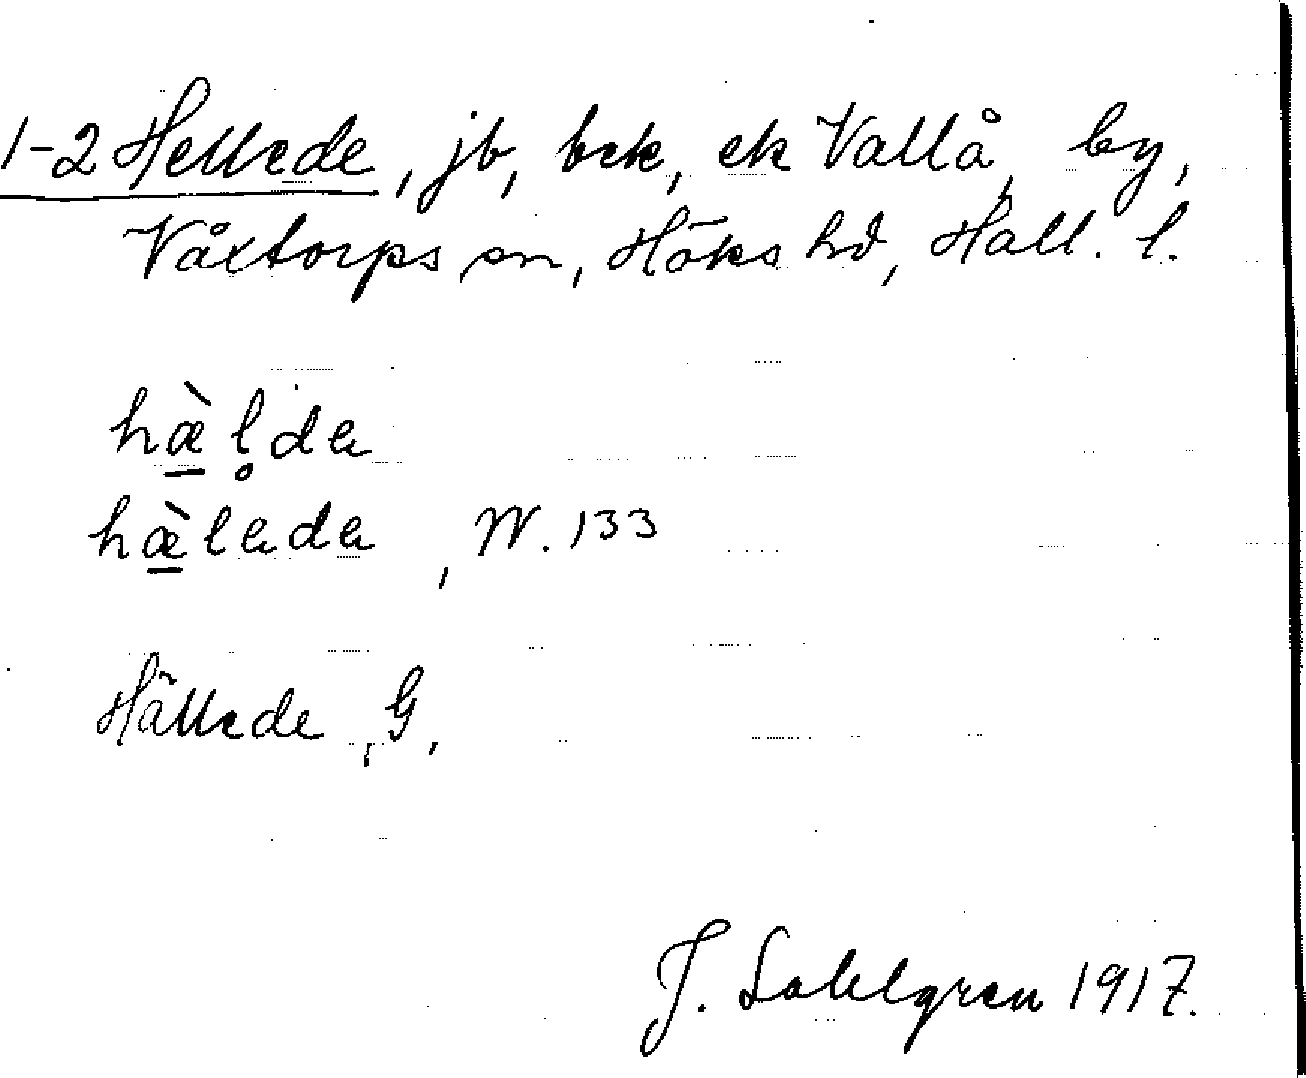 1-2 Hellede, jb, bek, ek Vallå, by,
Våxtorps sn, Höks hd, Hall. l.
hæ̀l̥da
hæ̀lada, W. 133
Hällede, G,
J. Sahlgren 1917.